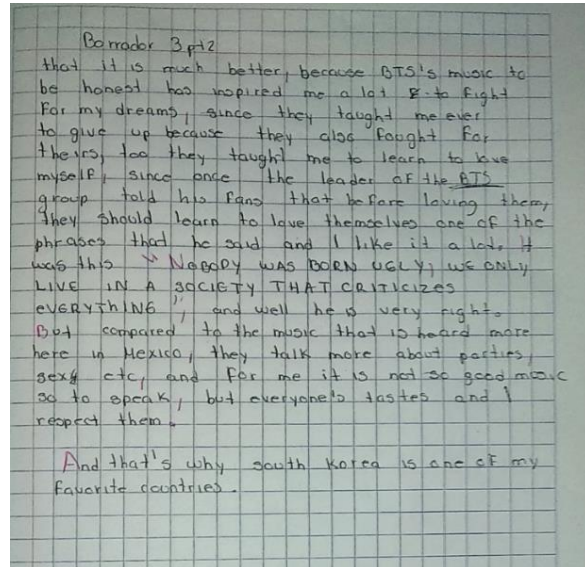 Borrador 3 pt2
that it is much better, because BTS's music to
be honest has inspired me a lot to fight
For my dreams, since they taught me ever
to give up because they also fought For
theirs, too they taught me to learn to love
myself, since once the leader of the BTS
group told his fans that before loving them,
they should learn to love themselves one of the
phrases that he said and I like it a lot. It
was this "NOBODY WAS BORN UGLY, WE ONLY
LIVE IN A SOCIETY THAT CRITICIZES
EVERYTHING", and well he is very right.
But compared to the music that is heard more
here in Mexico, they talk more about parties,
sexy etc, and For me it is not so good music
so to speak, but everyone's tastes and I
respect them.
And that's why south Korea is one of my
favorite countries.